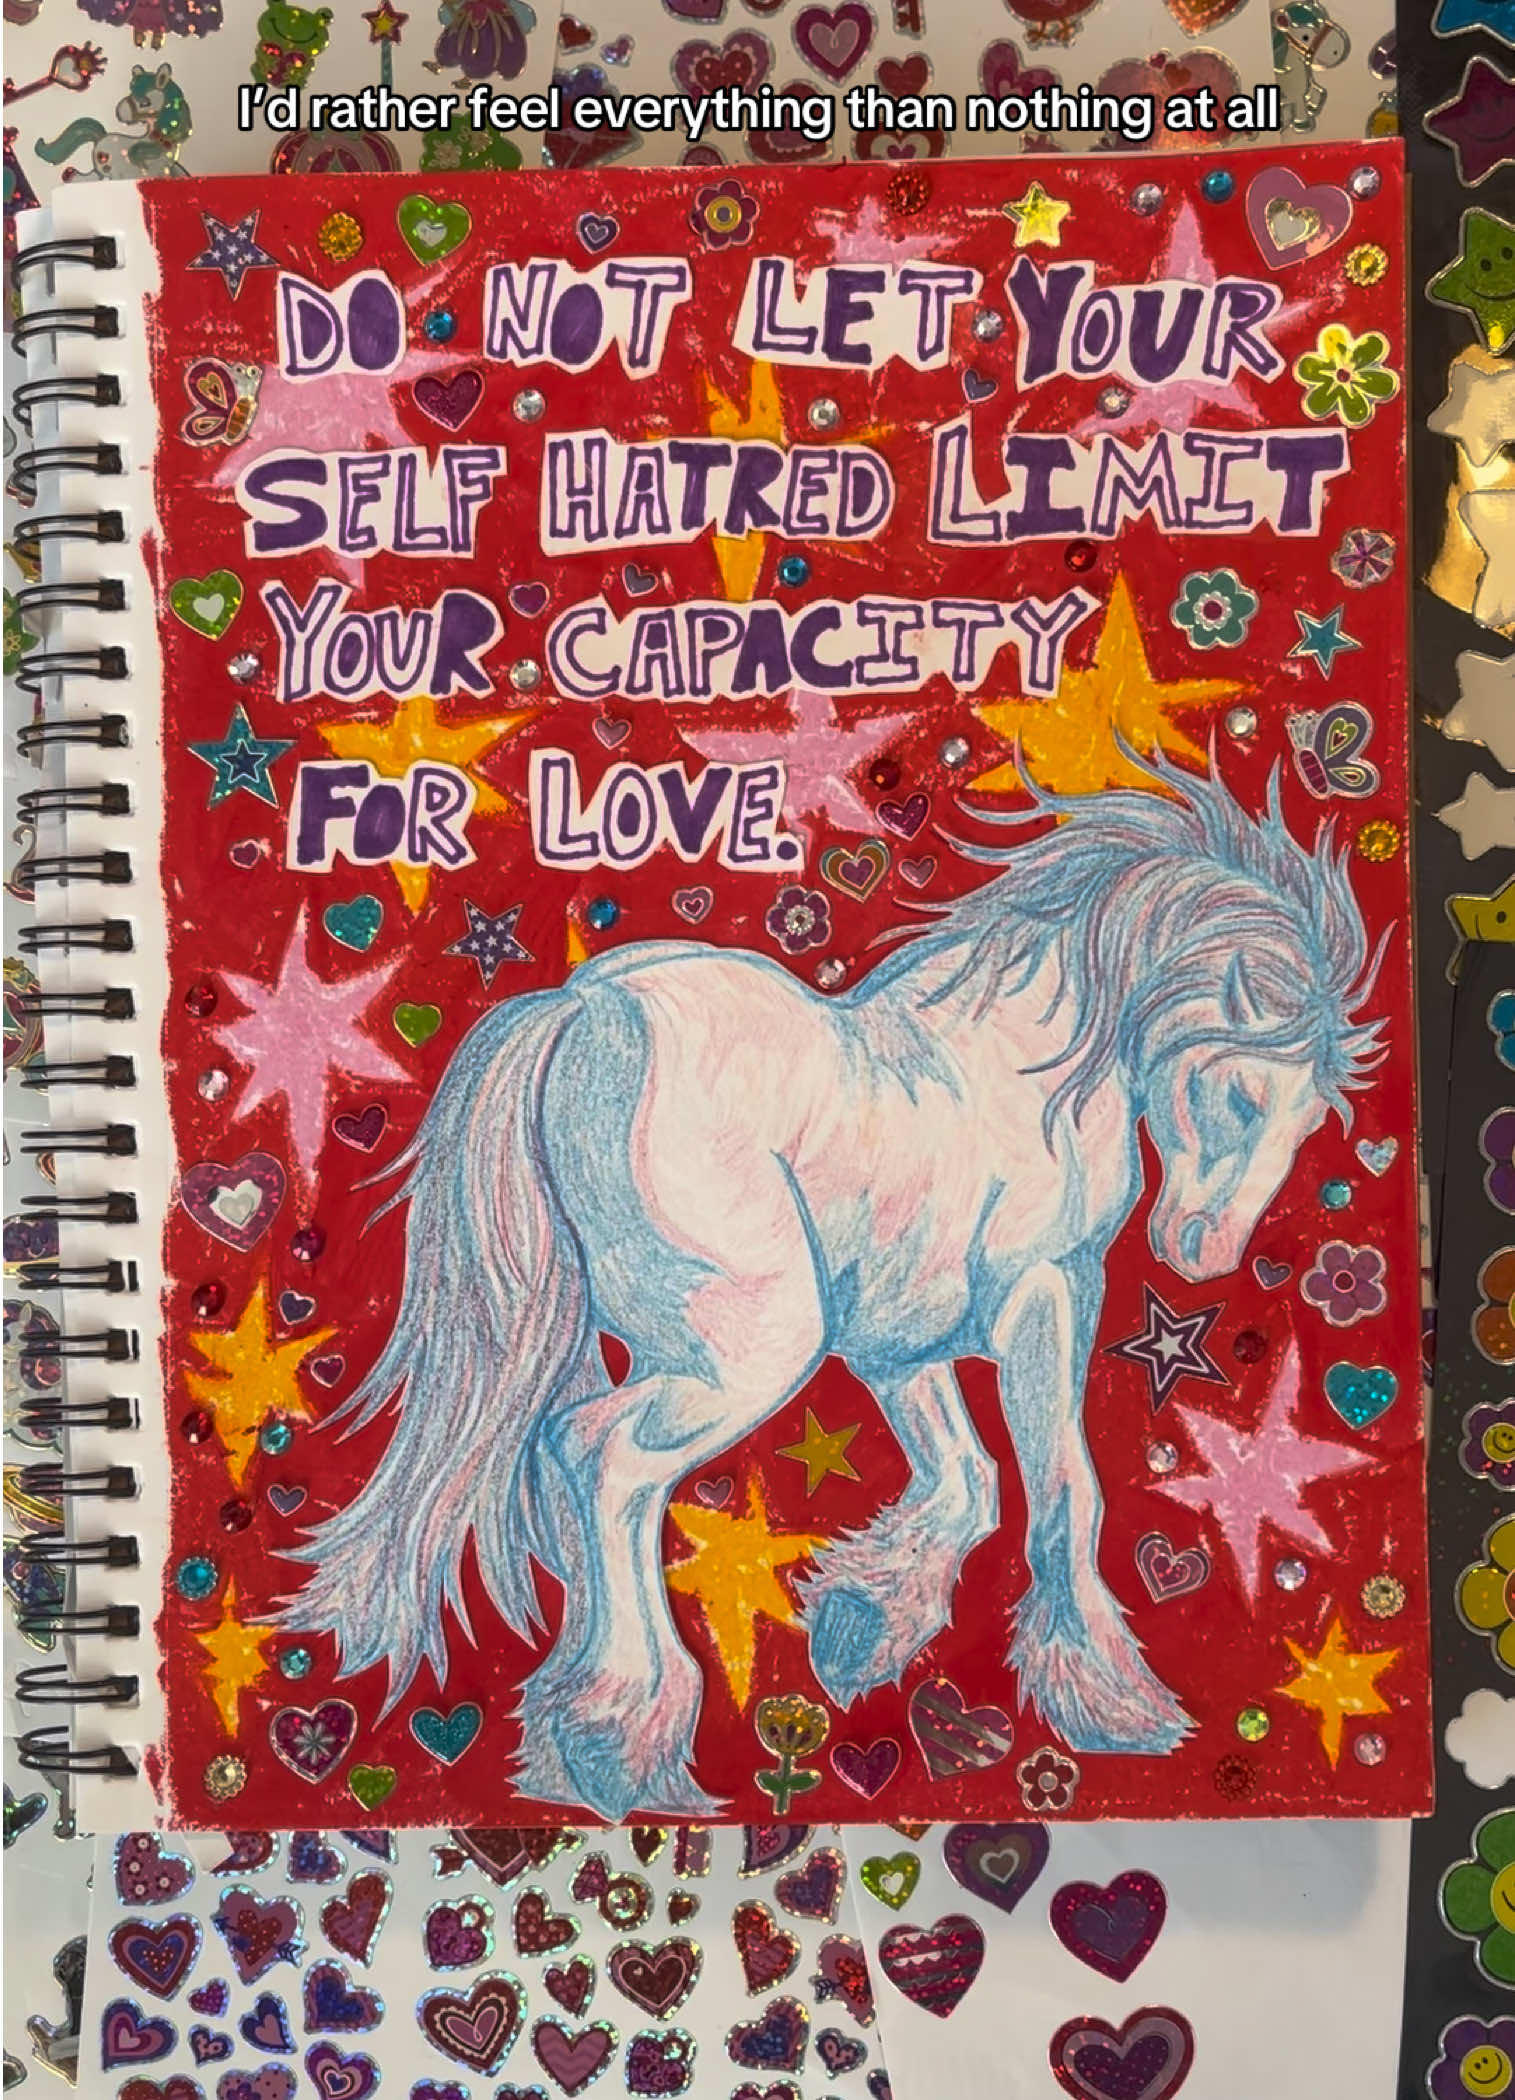 I'd rather feel everything than nothing at all
DO NOT LET YOUR
SELF HATRED LIMIT
YOUR CAPACITY
FOR LOVE.